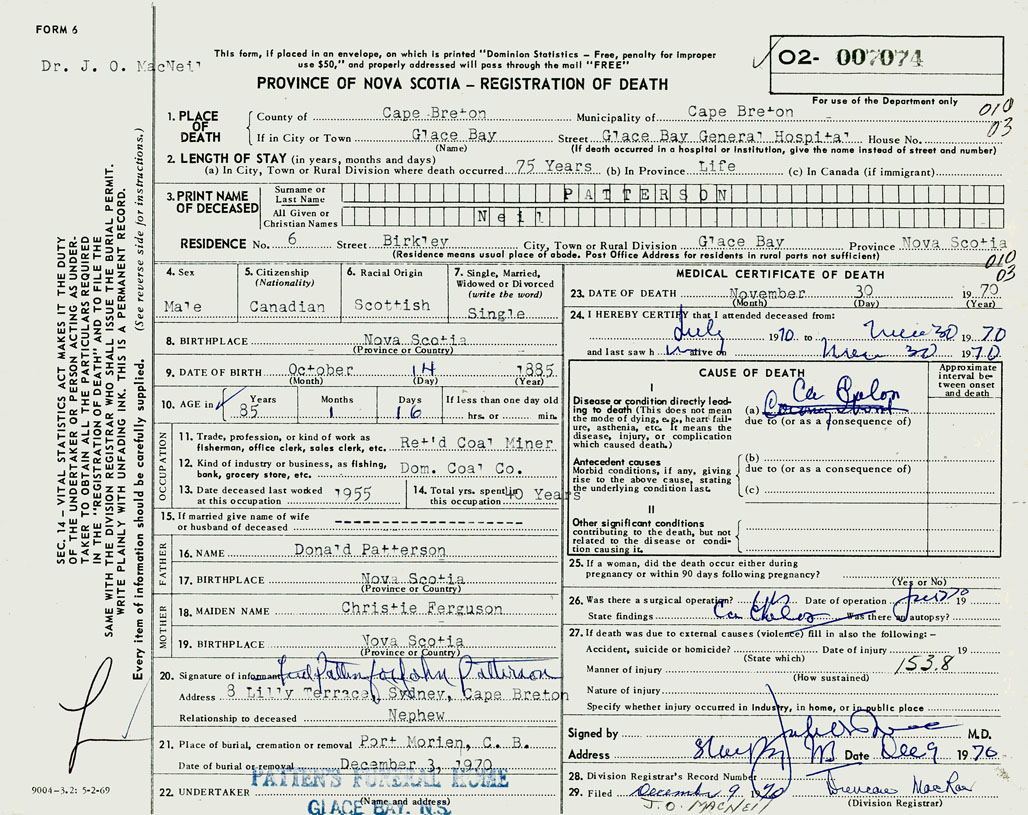 FORM 6
Dr. J. O. MacNeil
This form, if placed in an envelope, on which is printed "Dominion Statistics – Free, penalty for improper
use $50," and properly addressed will pass through the mail "FREE"
PROVINCE OF NOVA SCOTIA – REGISTRATION OF DEATH
O2- 007074
For use of the Department only
010
03
1. PLACE OF DEATH
County of Cape Breton Municipality of Cape Breton
If in City or Town Glace Bay Street Glace Bay General Hospital House No.
(Name) (If death occurred in a hospital or institution, give the name instead of street and number)
2. LENGTH OF STAY (in years, months and days)
(a) In City, Town or Rural Division where death occurred 75 Years (b) In Province Life (c) In Canada (if immigrant)
3. PRINT NAME OF DECEASED
Surname or Last Name PATTERSON
All Given or Christian Names Neil
RESIDENCE No. 6 Street Birkley City, Town or Rural Division Glace Bay Province Nova Scotia
(Residence means usual place of abode. Post Office Address for residents in rural parts not sufficient)
010
03
4. Sex
Male
5. Citizenship
(Nationality)
Canadian
6. Racial Origin
Scottish
7. Single, Married,
Widowed or Divorced
(write the word)
Single
8. BIRTHPLACE Nova Scotia
(Province or Country)
9. DATE OF BIRTH October 14 1885
(Month) (Day) (Year)
10. AGE in Years Months Days If less than one day old
85 1 16 hrs. or min.
OCCUPATION
11. Trade, profession, or kind of work as
fisherman, office clerk, sales clerk, etc. Ret'd Coal Miner
12. Kind of industry or business, as fishing,
bank, grocery store, etc. Dom. Coal Co.
13. Date deceased last worked
at this occupation 1955
14. Total yrs. spent in
this occupation 40 Years
15. If married give name of wife
or husband of deceased
FATHER
16. NAME Donald Patterson
17. BIRTHPLACE Nova Scotia
(Province or Country)
MOTHER
18. MAIDEN NAME Christie Ferguson
19. BIRTHPLACE Nova Scotia
(Province or Country)
20. Signature of informant for John Patterson
Address 8 Lilly Terrace, Sydney, Cape Breton
Relationship to deceased Nephew
21. Place of burial, cremation or removal Port Morien, C. B.
Date of burial or removal December 3, 1970
22. UNDERTAKER PATTEN'S FUNERAL HOME
(Name and address)
GLACE BAY, N.S.
MEDICAL CERTIFICATE OF DEATH
23. DATE OF DEATH November 30 1970
(Month) (Day) (Year)
24. I HEREBY CERTIFY that I attended deceased from:
July 1970 to 30 1970
and last saw h alive on 30 1970
CAUSE OF DEATH
Approximate interval between onset and death
I
Disease or condition directly leading to death (This does not mean the mode of dying, e.g., heart failure, asthenia, etc. It means the disease, injury, or complication which caused death.)
Ca Colon
(a)
due to (or as a consequence of)
Antecedent causes
Morbid conditions, if any, giving rise to the above cause, stating the underlying condition last.
(b)
due to (or as a consequence of)
(c)
II
Other significant conditions
contributing to the death, but not related to the disease or condition causing it.
25. If a woman, did the death occur either during
pregnancy or within 90 days following pregnancy?
(Yes or No)
26. Was there a surgical operation? Date of operation 19
State findings Ca Colon Was there an autopsy?
27. If death was due to external causes (violence) fill in also the following: –
Accident, suicide or homicide? Date of injury 19
(State which)
Manner of injury 153.8
(How sustained)
Nature of injury
Specify whether injury occurred in industry, in home, or in public place
Signed by M.D.
Address Date Dec 9 1970
28. Division Registrar's Record Number
29. Filed December 9 1970 Duncan MacRae
J. O. MACNEIL (Division Registrar)
SEC. 14 – VITAL STATISTICS ACT MAKES IT THE DUTY
OF THE UNDERTAKER OR PERSON ACTING AS UNDER-
TAKER TO OBTAIN ALL THE PARTICULARS REQUIRED
IN THE "REGISTRATION OF DEATH" AND TO FILE THE
SAME WITH THE DIVISION REGISTRAR WHO SHALL ISSUE THE BURIAL PERMIT.
WRITE PLAINLY WITH UNFADING INK. THIS IS A PERMANENT RECORD.
Every item of information should be carefully supplied. (See reverse side for instructions.)
9004–3.2: 5-2-69